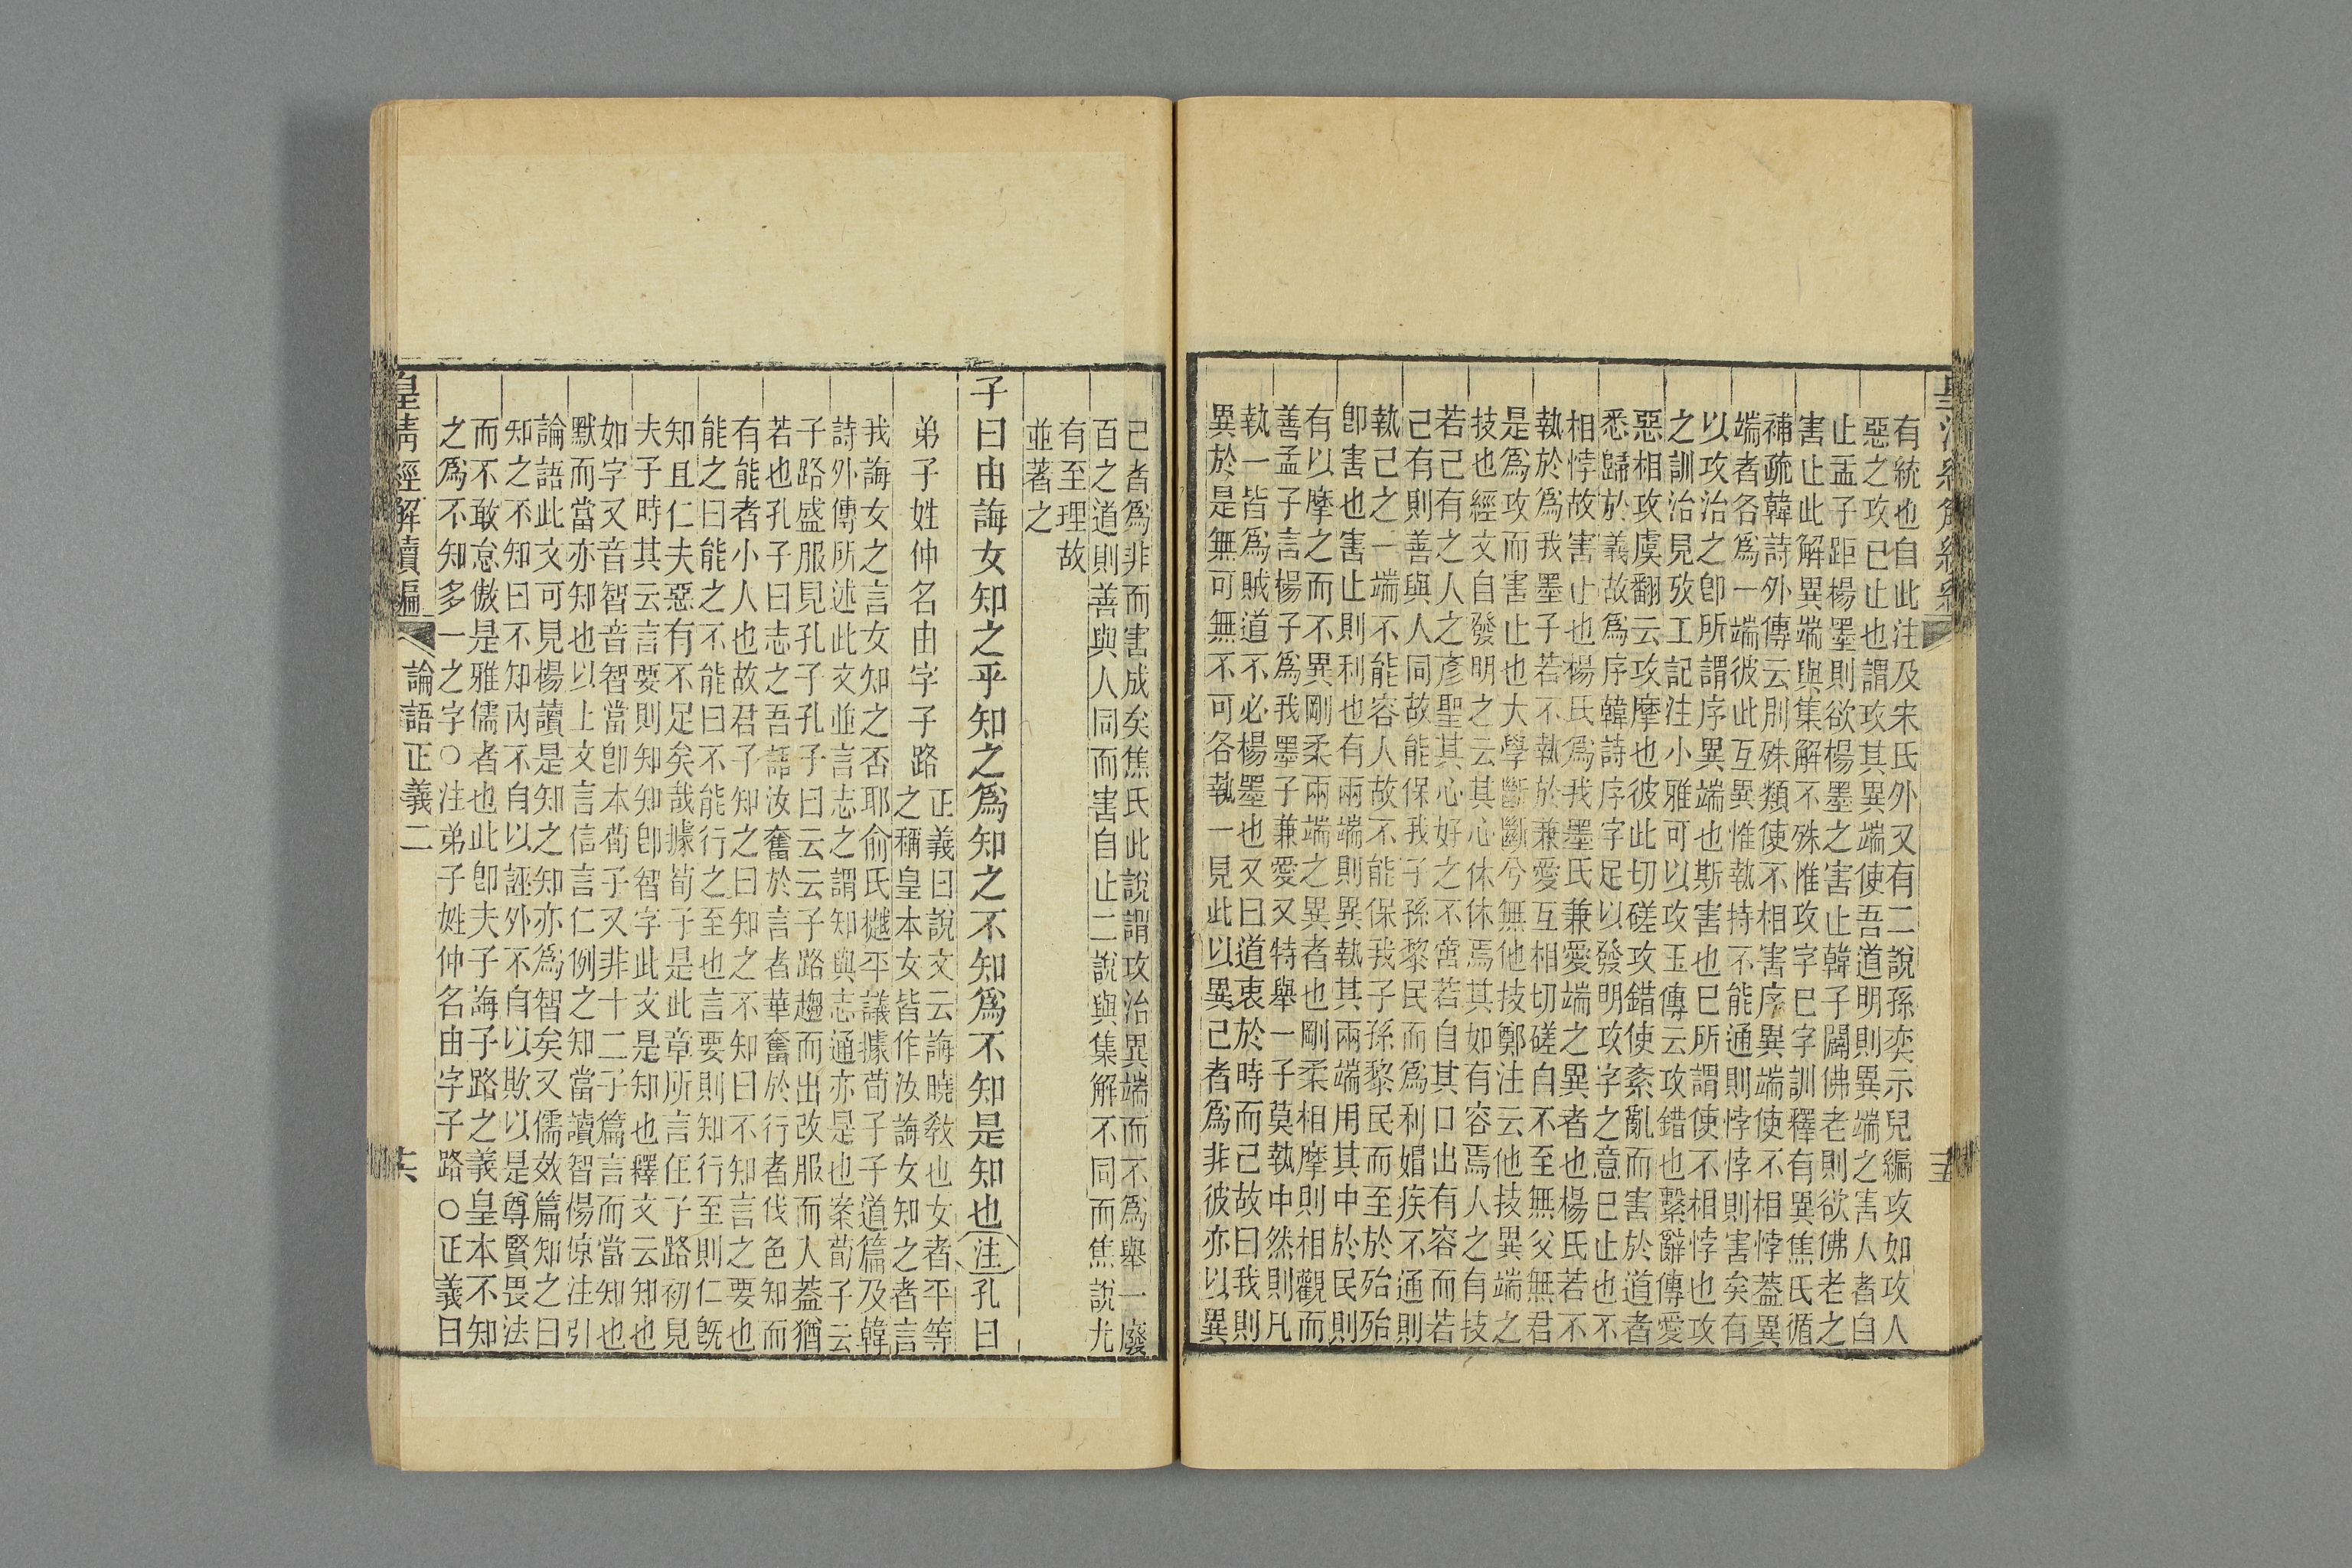 皇清經解續編
有統也自此注及宋氏外又有二說孫奕示兒編攻如攻人
惡之攻已止也謂攻其異端使吾道明則異端之害人者自
止孟子距楊墨則欲楊墨之害止韓子闢佛老則欲佛老之
害止此解異端與集解不殊惟攻字巳字訓釋有異焦氏循
補疏韓詩外傳云別殊類使不相害序異端使不相悖蓋異
端者各爲一端彼此互異惟執持不能通則悖悖則害矣有
以攻治之卽所謂序異端也斯害也巳所謂使不相悖也攻
之訓治見攷工記注小雅可以攻玉傳云攻錯也繫辭傳愛
惡相攻虞翻云攻摩也彼此切磋攻錯使紊亂而害於道者
悉歸於義故爲序韓詩序字足以發明攻字之意巳止也不
相悖故害止也楊氏爲我墨氏兼愛端之異者也楊氏若不
執於爲我墨子若不執於兼愛互相切磋自不至無父無君
是爲攻而害止也大學斷斷兮無他技鄭注云他技異端之
技也經文自發明之云其心休休焉其如有容焉人之有技
若己有之人之彥聖其心好之不啻若自其口出有容而若
己有則善與人同故能保我子孫黎民而爲利媢疾不通則
執己之一端不能容人故不能保我子孫黎民而至於殆殆
卽害也害止則利也有兩端則異執其兩端用其中於民則
有以摩之而不異剛柔兩端之異者也剛柔相摩則相觀而
善孟子言楊子爲我墨子兼愛又特舉一子莫執中然則凡
執一皆爲賊道不必楊墨也又曰道衷於時而已故曰我則
異於是無可無不可各執一見此以異己者爲非彼亦以異
己者爲非而害成矣焦氏此說謂攻治異端而不爲舉一廢
百之道則善與人同而害自止二說與集解不同而焦說尤
有至理故
並著之
子曰由誨女知之乎知之爲知之不知爲不知是知也注孔曰
弟子姓仲名由字子路
正義曰說文云誨曉敎也女者平等
之稱皇本女皆作汝誨女知之者言
我誨女之言女知之否耶俞氏樾平議據荀子子道篇及韓
詩外傳所述此文並言志之謂知與志通亦是也案荀子云
子路盛服見孔子孔子曰云云子路趨而出改服而入蓋猶
若也孔子曰志之吾語汝奮於言者華奮於行者伐色知而
有能者小人也故君子知之曰知之不知曰不知言之要也
能之曰能之不能曰不能行之至也言要則知行至則仁旣
知且仁夫惡有不足矣哉據荀子是此章所言在子路初見
夫子時其云言要則知知卽智字此文是知也釋文云知也
如字又音智音智當卽本荀子又非十二子篇言而當知也
默而當亦知也以上文言信言仁例之知當讀智楊倞注引
論語此文可見楊讀是知之知亦爲智矣又儒效篇知之曰
知之不知曰不知內不自以誣外不自以欺以是尊賢畏法
而不敢怠傲是雅儒者也此卽夫子誨子路之義皇本不知
之爲不知多一之字○注弟子姓仲名由字子路○正義曰
皇清經解續編
論語正義二